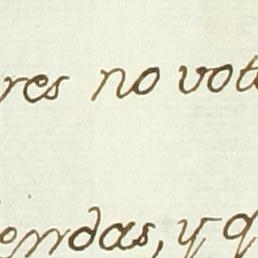 res no vot
endas, y q